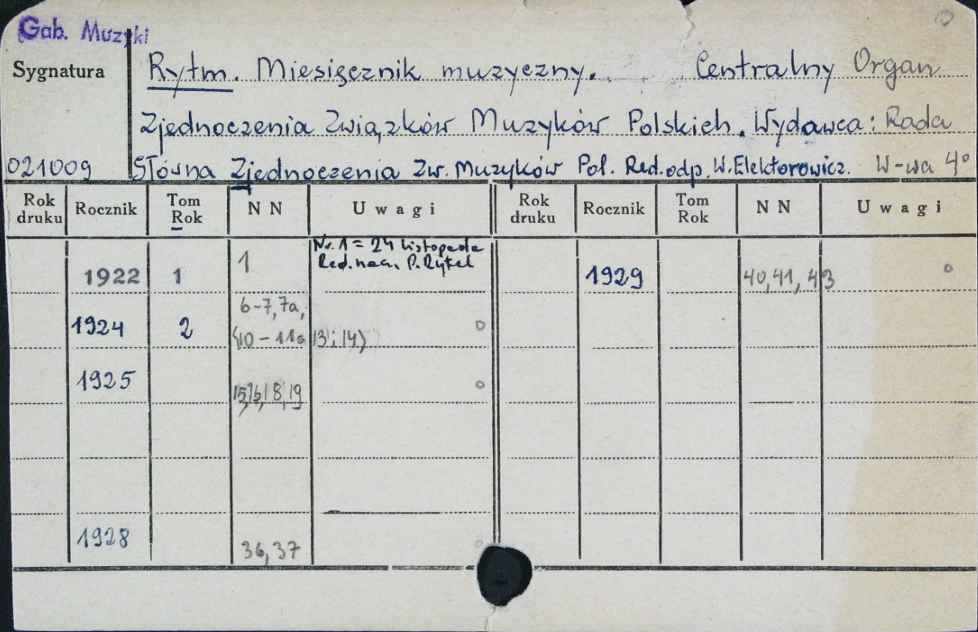 Gab. Muzyki
Sygnatura
Rytm. Miesięcznik muzyczny. Centralny Organ
Zjednoczenia Związków Muzyków Polskich. Wydawca: Rada
021009 Główna Zjednoczenia Zw. Muzyków Pol. Red. odp. W. Elektorowicz. W-wa 4°
Rok druku Rocznik Tom Rok NN Uwagi Rok druku Rocznik Tom Rok NN Uwagi
Nr. 1 = 24 listopada
1922 1 1 Red. nacz. P. Rytel 1929 40, 41, 43
6-7, 7a,
1924 2 (10 - 11a 13 i 14)
1925 15, 16, 18, 19
1928 36, 37